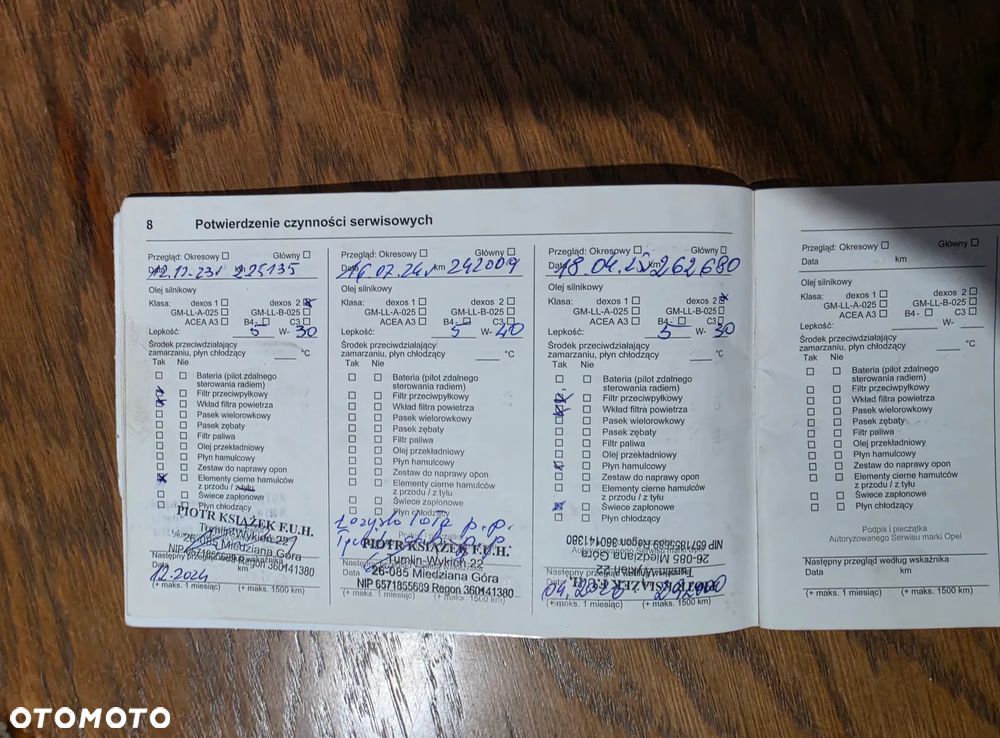 8 Potwierdzenie czynności serwisowych
Przegląd: Okresowy Główny
Data km
12.12.23r 225135
Olej silnikowy
Klasa: dexos 1 dexos 2
GM-LL-A-025 GM-LL-B-025
ACEA A3 B4- C3
Lepkość: 5 W- 30
Środek przeciwdziałający
zamarzaniu, płyn chłodzący °C
Tak Nie
Bateria (pilot zdalnego
sterowania radiem)
Filtr przeciwpyłkowy
Wkład filtra powietrza
Pasek wielorowkowy
Pasek zębaty
Filtr paliwa
Olej przekładniowy
Płyn hamulcowy
Zestaw do naprawy opon
Elementy cierne hamulców
z przodu / z tyłu
Świece zapłonowe
Płyn chłodzący
PIOTR KSIĄŻEK F.U.H.
Tumlin-Wykień 22
26-085 Miedziana Góra
NIP 6571855689 Regon 360141380
Następny przegląd według wskaźnika
Data km
12.2024
(+ maks. 1 miesiąc) (+ maks. 1500 km)
Przegląd: Okresowy Główny
Data km
16.07.24r 242009
Olej silnikowy
Klasa: dexos 1 dexos 2
GM-LL-A-025 GM-LL-B-025
ACEA A3 B4- C3
Lepkość: 5 W- 40
Środek przeciwdziałający
zamarzaniu, płyn chłodzący °C
Tak Nie
Bateria (pilot zdalnego
sterowania radiem)
Filtr przeciwpyłkowy
Wkład filtra powietrza
Pasek wielorowkowy
Pasek zębaty
Filtr paliwa
Olej przekładniowy
Płyn hamulcowy
Zestaw do naprawy opon
Elementy cierne hamulców
z przodu / z tyłu
Świece zapłonowe
Płyn chłodzący
Łożysko koła p.p.
PIOTR KSIĄŻEK F.U.H.
Tumlin-Wykień 22
26-085 Miedziana Góra
NIP 6571855689 Regon 360141380
Następny przegląd według wskaźnika
Data
(+ maks. 1 miesiąc) (+ maks. 1500 km)
Przegląd: Okresowy Główny
Data km
18.04.25r 262680
Olej silnikowy
Klasa: dexos 1 dexos 2
GM-LL-A-025 GM-LL-B-025
ACEA A3 B4- C3
Lepkość: 5 W- 30
Środek przeciwdziałający
zamarzaniu, płyn chłodzący °C
Tak Nie
Bateria (pilot zdalnego
sterowania radiem)
Filtr przeciwpyłkowy
Wkład filtra powietrza
Pasek wielorowkowy
Pasek zębaty
Filtr paliwa
Olej przekładniowy
Płyn hamulcowy
Zestaw do naprawy opon
Elementy cierne hamulców
z przodu / z tyłu
Świece zapłonowe
Płyn chłodzący
NIP 6571855689 Regon 360141380
Autoryzowanego Serwisu marki Opel
26-085 Miedziana Góra
Następny przegląd według wskaźnika
Tumlin-Wykień 22
PIOTR KSIĄŻEK F.U.H.
Data
(+ maks. 1 miesiąc) (+ maks. 1500 km)
Przegląd: Okresowy Główny
Data km
Olej silnikowy
Klasa: dexos 1 dexos 2
GM-LL-A-025 GM-LL-B-025
ACEA A3 B4- C3
Lepkość: W-
Środek przeciwdziałający
zamarzaniu, płyn chłodzący °C
Tak Nie
Bateria (pilot zdalnego
sterowania radiem)
Filtr przeciwpyłkowy
Wkład filtra powietrza
Pasek wielorowkowy
Pasek zębaty
Filtr paliwa
Olej przekładniowy
Płyn hamulcowy
Zestaw do naprawy opon
Elementy cierne hamulców
z przodu / z tyłu
Świece zapłonowe
Płyn chłodzący
Podpis i pieczątka
Autoryzowanego Serwisu marki Opel
Następny przegląd według wskaźnika
Data km
(+ maks. 1 miesiąc) (+ maks. 1500 km)
OTOMOTO